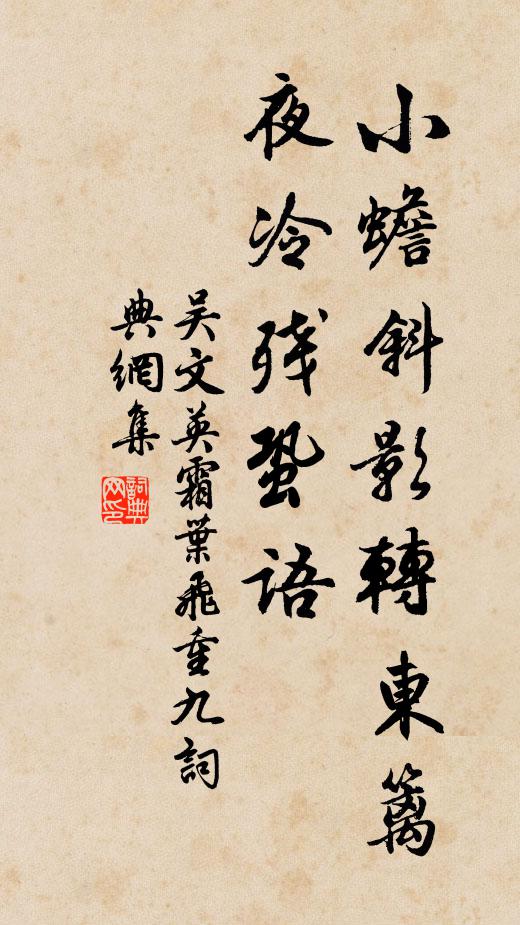 小蟾斜影轉東篱
夜冷残蛩語
吴文英霜葉飛重九詞
典網集
詞典網印